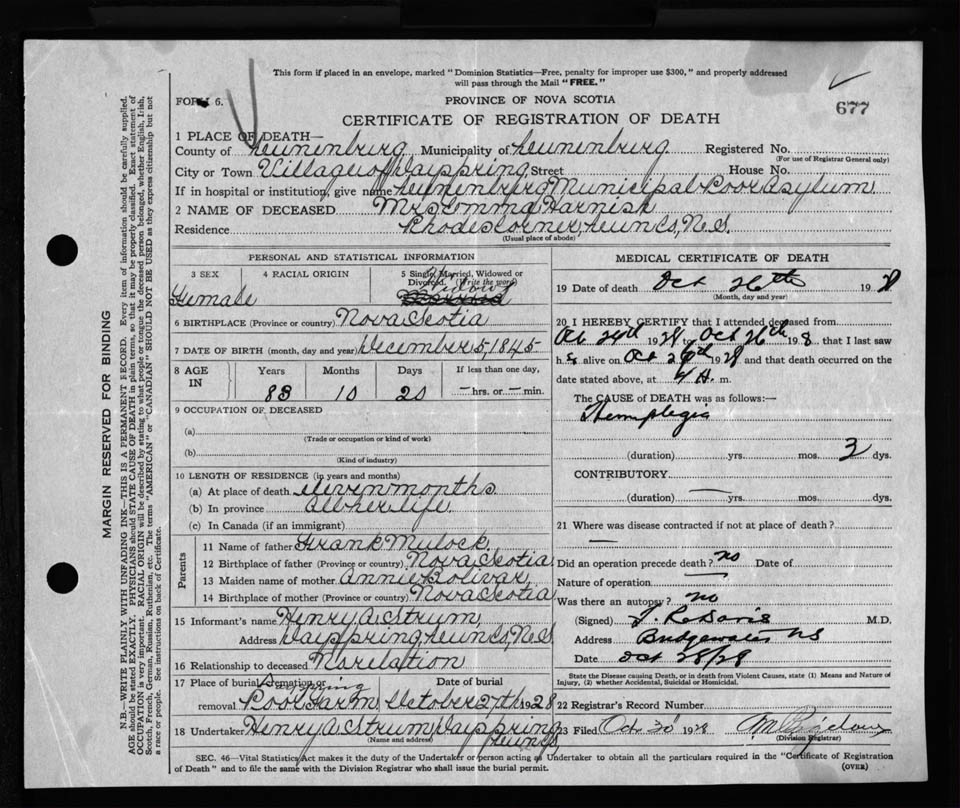 This form if placed in an envelope, marked “Dominion Statistics—Free, penalty for improper use $300,” and properly addressed
will pass through the Mail “FREE.”
FORM 6.
PROVINCE OF NOVA SCOTIA
677
CERTIFICATE OF REGISTRATION OF DEATH
1 PLACE OF DEATH—
County of Lunenburg Municipality of Lunenburg Registered No.
(For use of Registrar General only)
City or Town Village of Dayspring Street House No.
If in hospital or institution, give name Lunenburg Municipal Poor Asylum
2 NAME OF DECEASED Mrs Emma Harnish
Residence Rhodes Corner, Lun Co, N.S.
(Usual place of abode)
PERSONAL AND STATISTICAL INFORMATION
3 SEX 4 RACIAL ORIGIN 5 Single, Married, Widowed or Divorced. (Write the word)
Female Widow
6 BIRTHPLACE (Province or country) Nova Scotia
7 DATE OF BIRTH (month, day and year) December 5, 1845
8 AGE IN Years Months Days If less than one day,
83 10 20 — hrs. or — min.
9 OCCUPATION OF DECEASED
(a)
(Trade or occupation or kind of work)
(b)
(Kind of industry)
10 LENGTH OF RESIDENCE (in years and months)
(a) At place of death eleven months
(b) In province all her life
(c) In Canada (if an immigrant)
Parents
11 Name of father Frank Mulock
12 Birthplace of father (Province or country) Nova Scotia
13 Maiden name of mother Annie Bolivar
14 Birthplace of mother (Province or country) Nova Scotia
15 Informant's name Henry A. Strum,
Address Dayspring, Lun Co, N.S
16 Relationship to deceased No relation
17 Place of burial, cremation or removal Date of burial
Dayspring
Poor Farm October 27th 1928
18 Undertaker Henry A. Strum, Dayspring
(Name and address) Lun Co,
MEDICAL CERTIFICATE OF DEATH
19 Date of death Oct 26th 1928
(Month, day and year)
20 I HEREBY CERTIFY that I attended deceased from
Oct 24th 1928 to Oct 26th 1928 that I last saw
h alive on Oct 1928 and that death occurred on the
date stated above, at 4 A. m.
The CAUSE of DEATH was as follows:—
Hemiplegia
(duration) yrs. mos. 3 dys.
CONTRIBUTORY
(duration) — yrs. mos. dys.
21 Where was disease contracted if not at place of death?
—
Did an operation precede death? no Date of
Nature of operation —
Was there an autopsy? no
(Signed) M.D.
Address Bridgewater NS
Date Oct 28/28
State the Disease causing Death, or in death from Violent Causes, state (1) Means and Nature of
Injury, (2) whether Accidental, Suicidal or Homicidal.
22 Registrar's Record Number
23 Filed Oct 30 1928
(Division Registrar)
SEC. 46—Vital Statistics Act makes it the duty of the Undertaker or person acting as Undertaker to obtain all the particulars required in the “Certificate of Registration
of Death” and to file the same with the Division Registrar who shall issue the burial permit. (OVER)
MARGIN RESERVED FOR BINDING
N.B.—WRITE PLAINLY WITH UNFADING INK—THIS IS A PERMANENT RECORD. Every item of information should be carefully supplied.
AGE should be stated EXACTLY. PHYSICIANS should STATE CAUSE OF DEATH in plain terms, so that it may be properly classified. Exact statement of
OCCUPATION is very important. RACIAL ORIGIN will be described by stating to what people or tongue the deceased person belonged, whether English, Irish,
Scotch, French, German, Russian, Ruthenian, etc. The terms “AMERICAN” or “CANADIAN” SHOULD NOT BE USED as they express citizenship but not
a race or people. See instructions on back of Certificate.